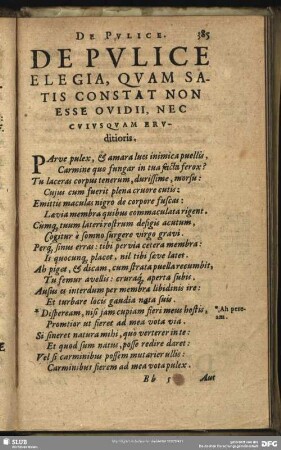 DE PVLICE. 385
DE PVLICE
ELEGIA, QVAM SA-
TIS CONSTAT NON
ESSE OVIDII, NEC
CVIVSQVAM ERV-
ditioris.
PArve pulex, & amara lues inimica puellis,
Carmine quo fungar in tua facta ferox?
Tu laceras corpus tenerum, durissime, morsu:
Cujus cum fuerit plena cruore cutis:
Emittis maculas nigro de corpore fuscas:
Lævia membra quibus commaculata rigent.
Cumq́; tuum lateri rostrum defigis acutum,
Cogitur è somno surgere virgo gravi.
Perq́; sinus erras: tibi pervia cetera membra:
Is quocunq; placet, nil tibi sæve latet.
Ah piget, & dicam, cum strata puella recumbit,
Tu femur avellis: cruraq́; aperta subis.
Ausus es interdum per membra libidinis ire:
Et turbare locis gaudia nata suis.
* Dispeream, nisi jam cupiam fieri meus hostis, * Ah pere-
am.
Promtior ut fieret ad mea vota via.
Si sineret natura mihi, quò verterer inte:
Et quod sum natus, posse redire daret:
Vel si carminibus possem mutarier ullis:
Carminibus fierem ad mea vota pulex.
Bb 5 Aut
SLUB
DFG